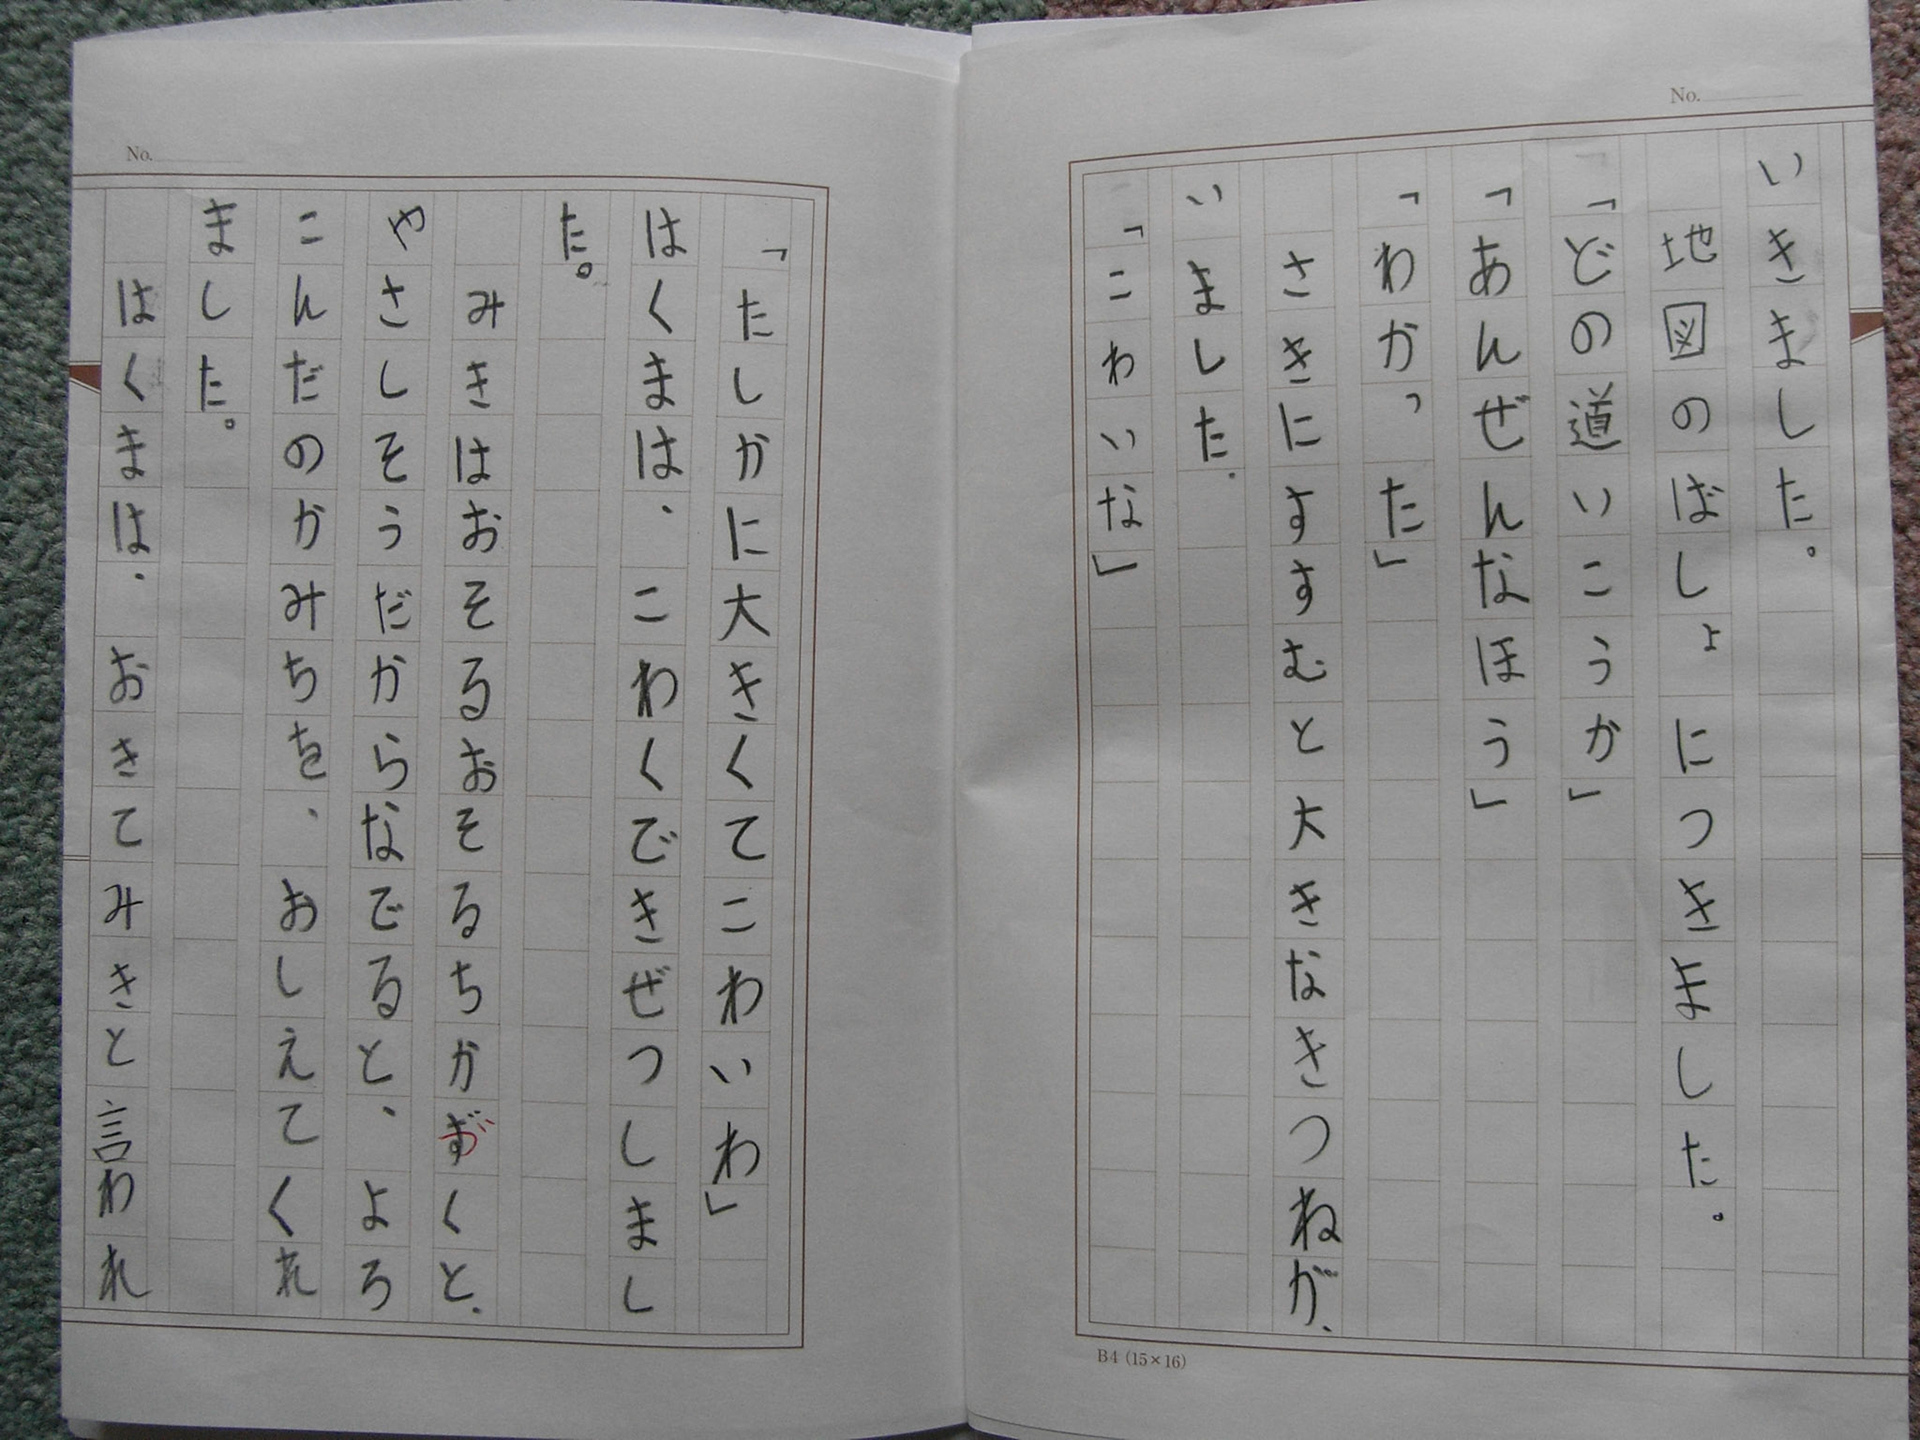 No.
いきました。
地図のばしょにつきました。
「どの道いこうか」
「あんぜんなほう」
「わかった」
さきにすすむと大きなきつねが、
いました.
「こわいな」
B4(15×16)
No.
「たしかに大きくてこわいわ」
はくまは、こわくできぜつしまし
た。
みきはおそるおそるちかずくと、
やさしそうだからなでると、よろ
こんだのかみちを、おしえてくれ
ました。
はくまは、おきてみきと言われ